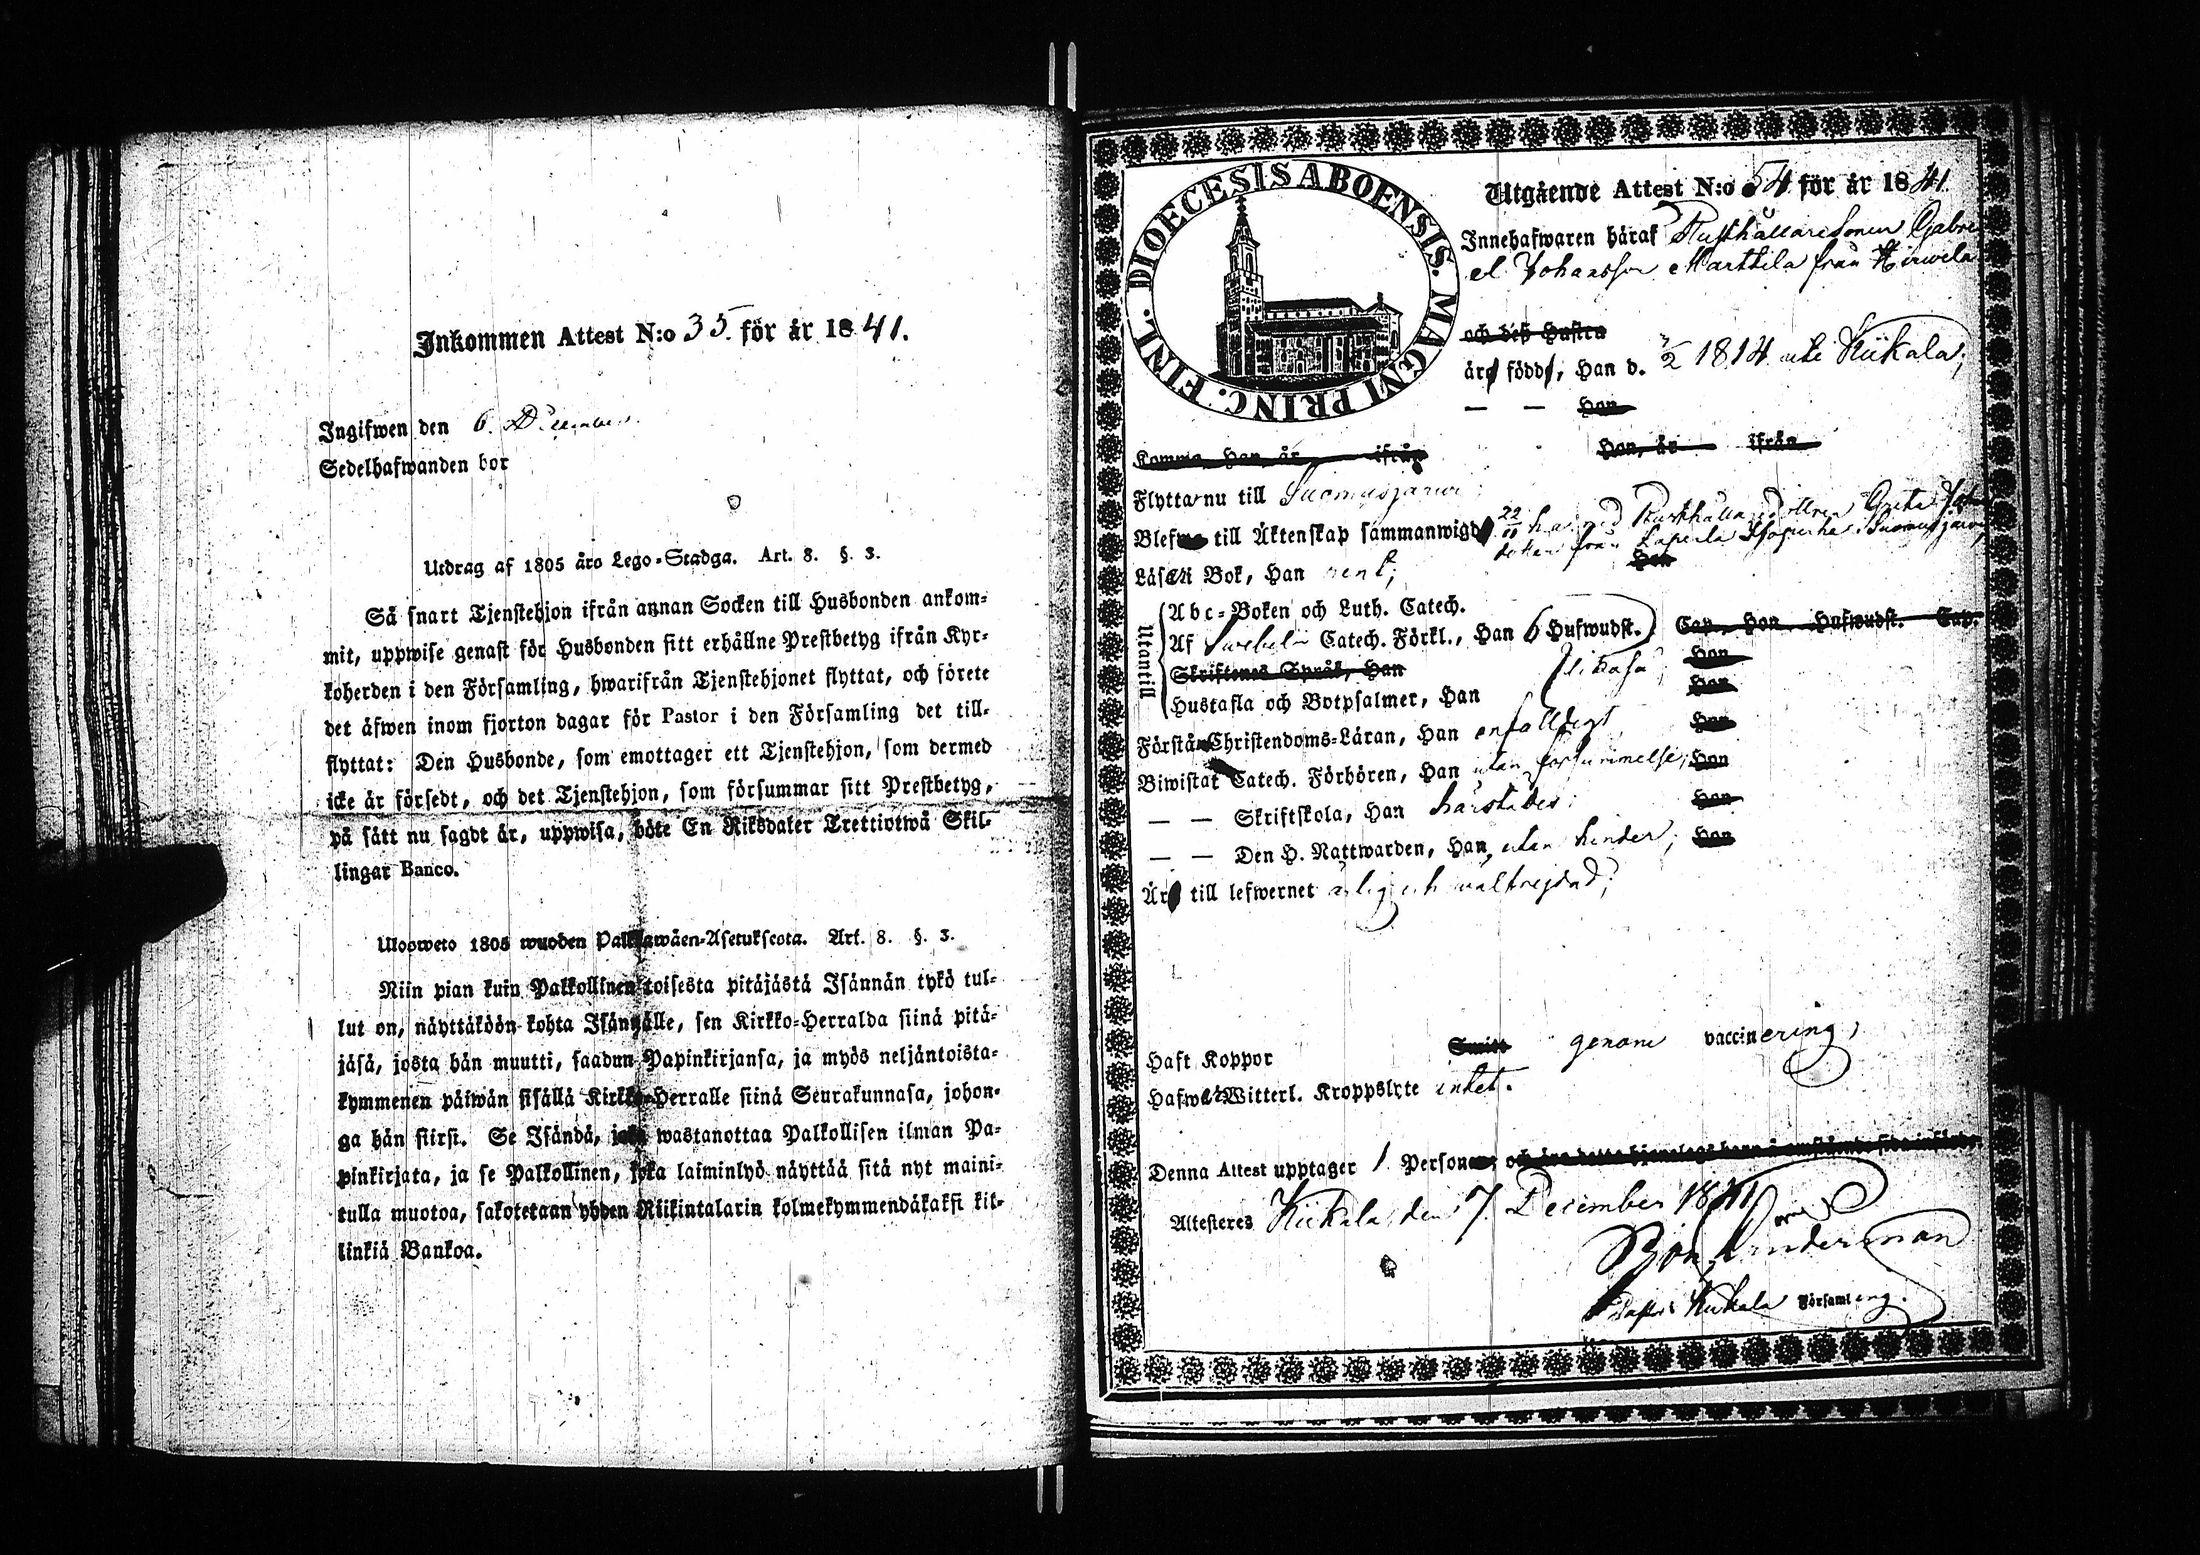 Inkommen Attest N:o 35. för år 1841.
Ingifwen den 6. December
Sedelhafwanden bor
Utdrag af 1805 års Lego-Stadga. Art. 8. §. 3.
Så snart Tjenstehjon ifrån annan Socken till Husbonden ankom-
mit, uppwise genast för Husbonden sitt erhållne Prestbetyg ifrån Kyr-
koherden i den Församling, hwarifrån Tjenstehjonet flyttat, och förete
det äfwen inom fjorton dagar för Pastor i den Församling det till-
flyttat: Den Husbonde, som emottager ett Tjenstehjon, som dermed
icke är försedt, och det Tjenstehjon, som försummar sitt Prestbetyg,
på sätt nu sagdt är, uppwisa, böte En Riksdaler Trettiotwå Skil-
lingar Banco.
Ulosweto 1805 wuoden Palkkawäen-Asetuksesta. Art. 8. §. 3.
Niin pian kuin Palkollinen toisesta pitäjästä Isännän tykö tul-
lut on, näyttäköön kohta Isännälle, sen Kirkko-Herralda siinä pitä-
jäsä, josta hän muutti, saadun Papinkirjansa, ja myös neljäntoista-
kymmenen päiwän sisällä Kirkko-Herralle siinä Seurakunnasa, johon-
ga hän siirsi. Se Isändä, joka wastanottaa Palkollisen ilman Pa-
pinkirjata, ja se Palkollinen, joka laiminlyö näyttää sitä nyt maini-
tulla muotoa, sakotetaan yhden Riikintalarin kolmekymmendäkaksi kil-
linkiä Bankoa.
DIOECESIS ABOENSIS. MAGNI PRINC. FINL.
Utgående Attest N:o 54 för år 1841.
Innehafwaren häraf Rusthållaresonen Gabri
el Johansson Marttila från Hirwela
och deß Hustru
äro född, Han d. 7/2 1814 uti Kiikala;
— — Hon
Komma, Han, år ifrån Hon, år ifrån
Flyttar nu till Suomusjärwi
Blefwo till Äktenskap sammanwigd 22/11 h.a. med Rusthållaredottren Greta
från Laperla i Suomusjärwi
Hon
Läser i Bok, Han rent;
Utantill
Abc-Boken och Luth. Catech.
Af Swebeli Catech. Förkl., Han 6 Hufwudst. Cap. Hon Hufwudst. Cap.
Skriftenes Språk, Han Hon
Hustafla och Botpsalmer, Han Hon
Förstår Christendoms-Läran, Han enfalldigt Hon
Biwistat Catech. Förhören, Han utan försummelse; Hon
— — Skriftskola, Han härstädes; Hon
— — Den H. Nattwarden, Han utan hinder; Hon
Är till lefwernet ärlig och wälfrejdad;
Haft Koppor Smitt genom vaccinering,
Hafwer Witterl. Kroppslyte intet.
Denna Attest upptager 1 Person
Attesteres Kiikala, den 7. December 1841
Linderman
Pastor i Kiikala Församling.